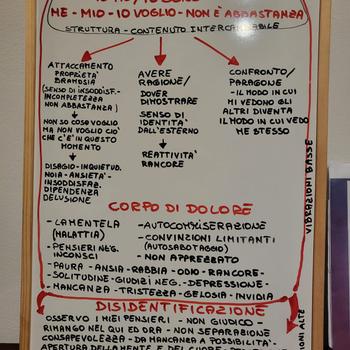 ME - MIO - IO VOGLIO - NON È ABBASTANZA
STRUTTURA - CONTENUTO INTERCAMBIABILE
ATTACCAMENTO
PROPRIETÀ
BRAMOSIA
(SENSO DI INSODDISF. -
INCOMPLETEZZA
NON ABBASTANZA)
NON SO COSA VOGLIO
MA NON VOGLIO CIÒ
CHE C'È IN QUESTO
MOMENTO
DISAGIO - INQUIETUD.
NOIA - ANSIETÀ -
INSODDISFAZ.
DIPENDENZA
DELUSIONE
AVERE
RAGIONE/
DOVER
DIMOSTRARE
SENSO DI
IDENTITÀ
DALL'ESTERNO
REATTIVITÀ
RANCORE
CONFRONTO/
PARAGONE
- IL MODO IN CUI
MI VEDONO GLI
ALTRI DIVENTA
IL MODO IN CUI VEDO
ME STESSO
VIBRAZIONI BASSE
CORPO DI DOLORE
- LAMENTELA
(MALATTIA)
- PENSIERI NEG.
INCONSCI
- AUTOCOMMISERAZIONE
- CONVINZIONI LIMITANTI
(AUTOSABOTAGGIO)
- NON APPREZZATO
- PAURA - ANSIA - RABBIA - ODIO - RANCORE -
- SOLITUDINE - GIUDIZI NEG. - DEPRESSIONE -
- MANCANZA - TRISTEZZA - GELOSIA - INVIDIA
DISIDENTIFICAZIONE
OSSERVO I MIEI PENSIERI - NON GIUDICO -
RIMANGO NEL QUI ED ORA - NON SEPARAZIONE
CONSAPEVOLEZZA - DA MANCANZA A POSSIBILITÀ -
APERTURA DELLA MENTE E DEL CUORE
IONI ALTE